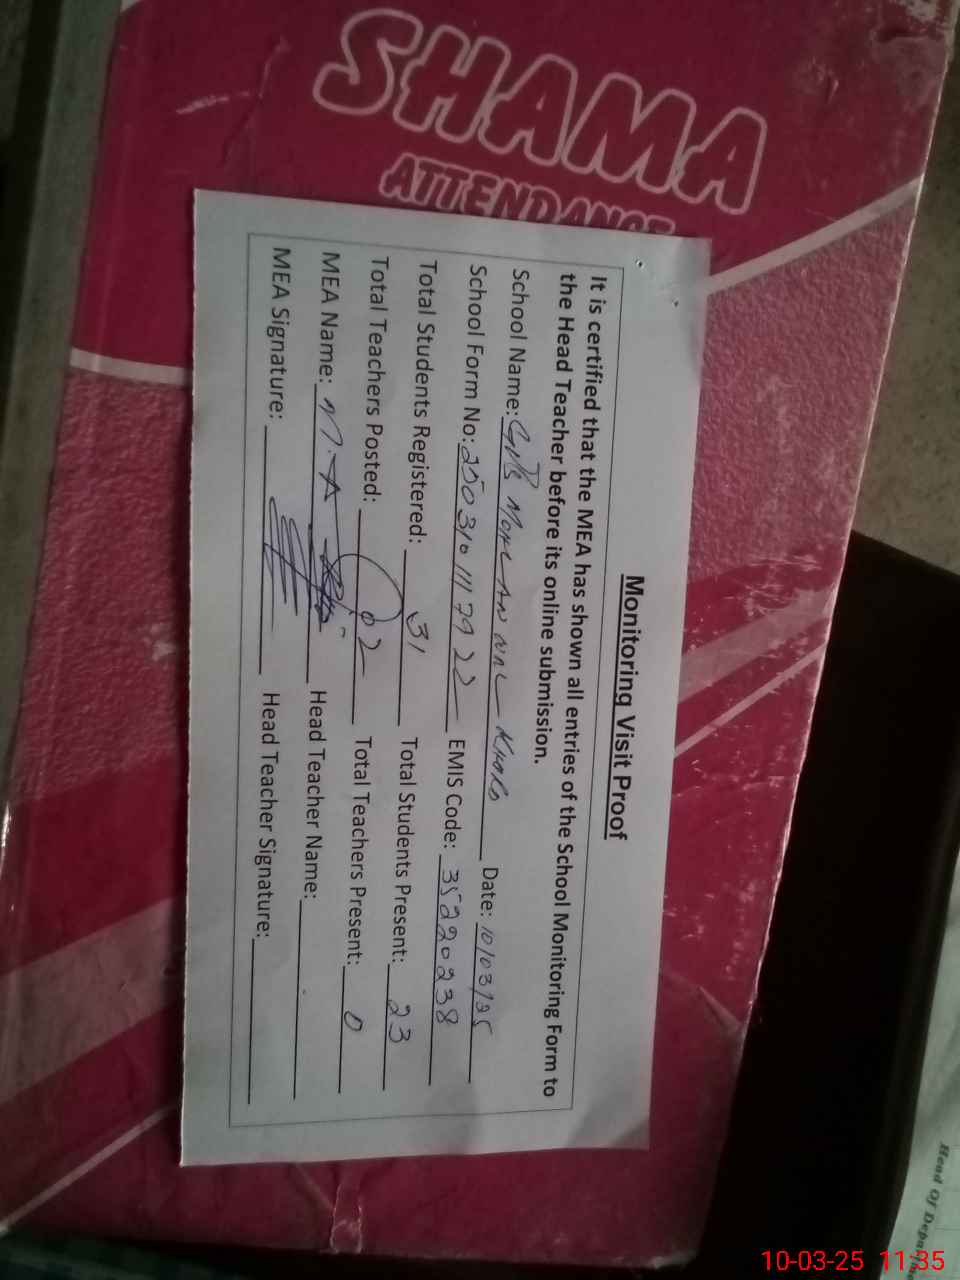 SHAMA
ATTENDANCE
Monitoring Visit Proof
It is certified that the MEA has shown all entries of the School Monitoring Form to
the Head Teacher before its online submission.
School Name: GPS Date: 10/03/25
School Form No: 25031011179 22 EMIS Code: 35220238
Total Students Registered: 31 Total Students Present: 23
Total Teachers Posted: 02 Total Teachers Present: 0
MEA Name: M.A Head Teacher Name:
MEA Signature: Head Teacher Signature:
Head Of
10-03-25 11:35